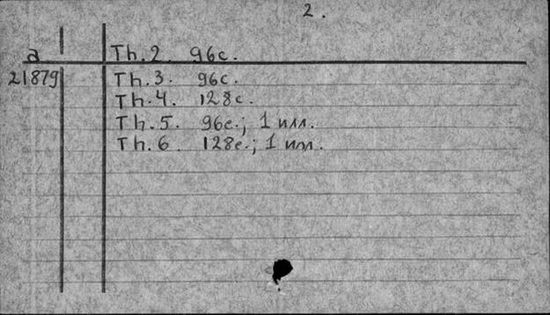 2.
a Th. 2. 96с.
21879 Th. 3. 96с.
Th. 4. 128с.
Th. 5. 96с.; 1 илл.
Th. 6. 128с.; 1 илл.